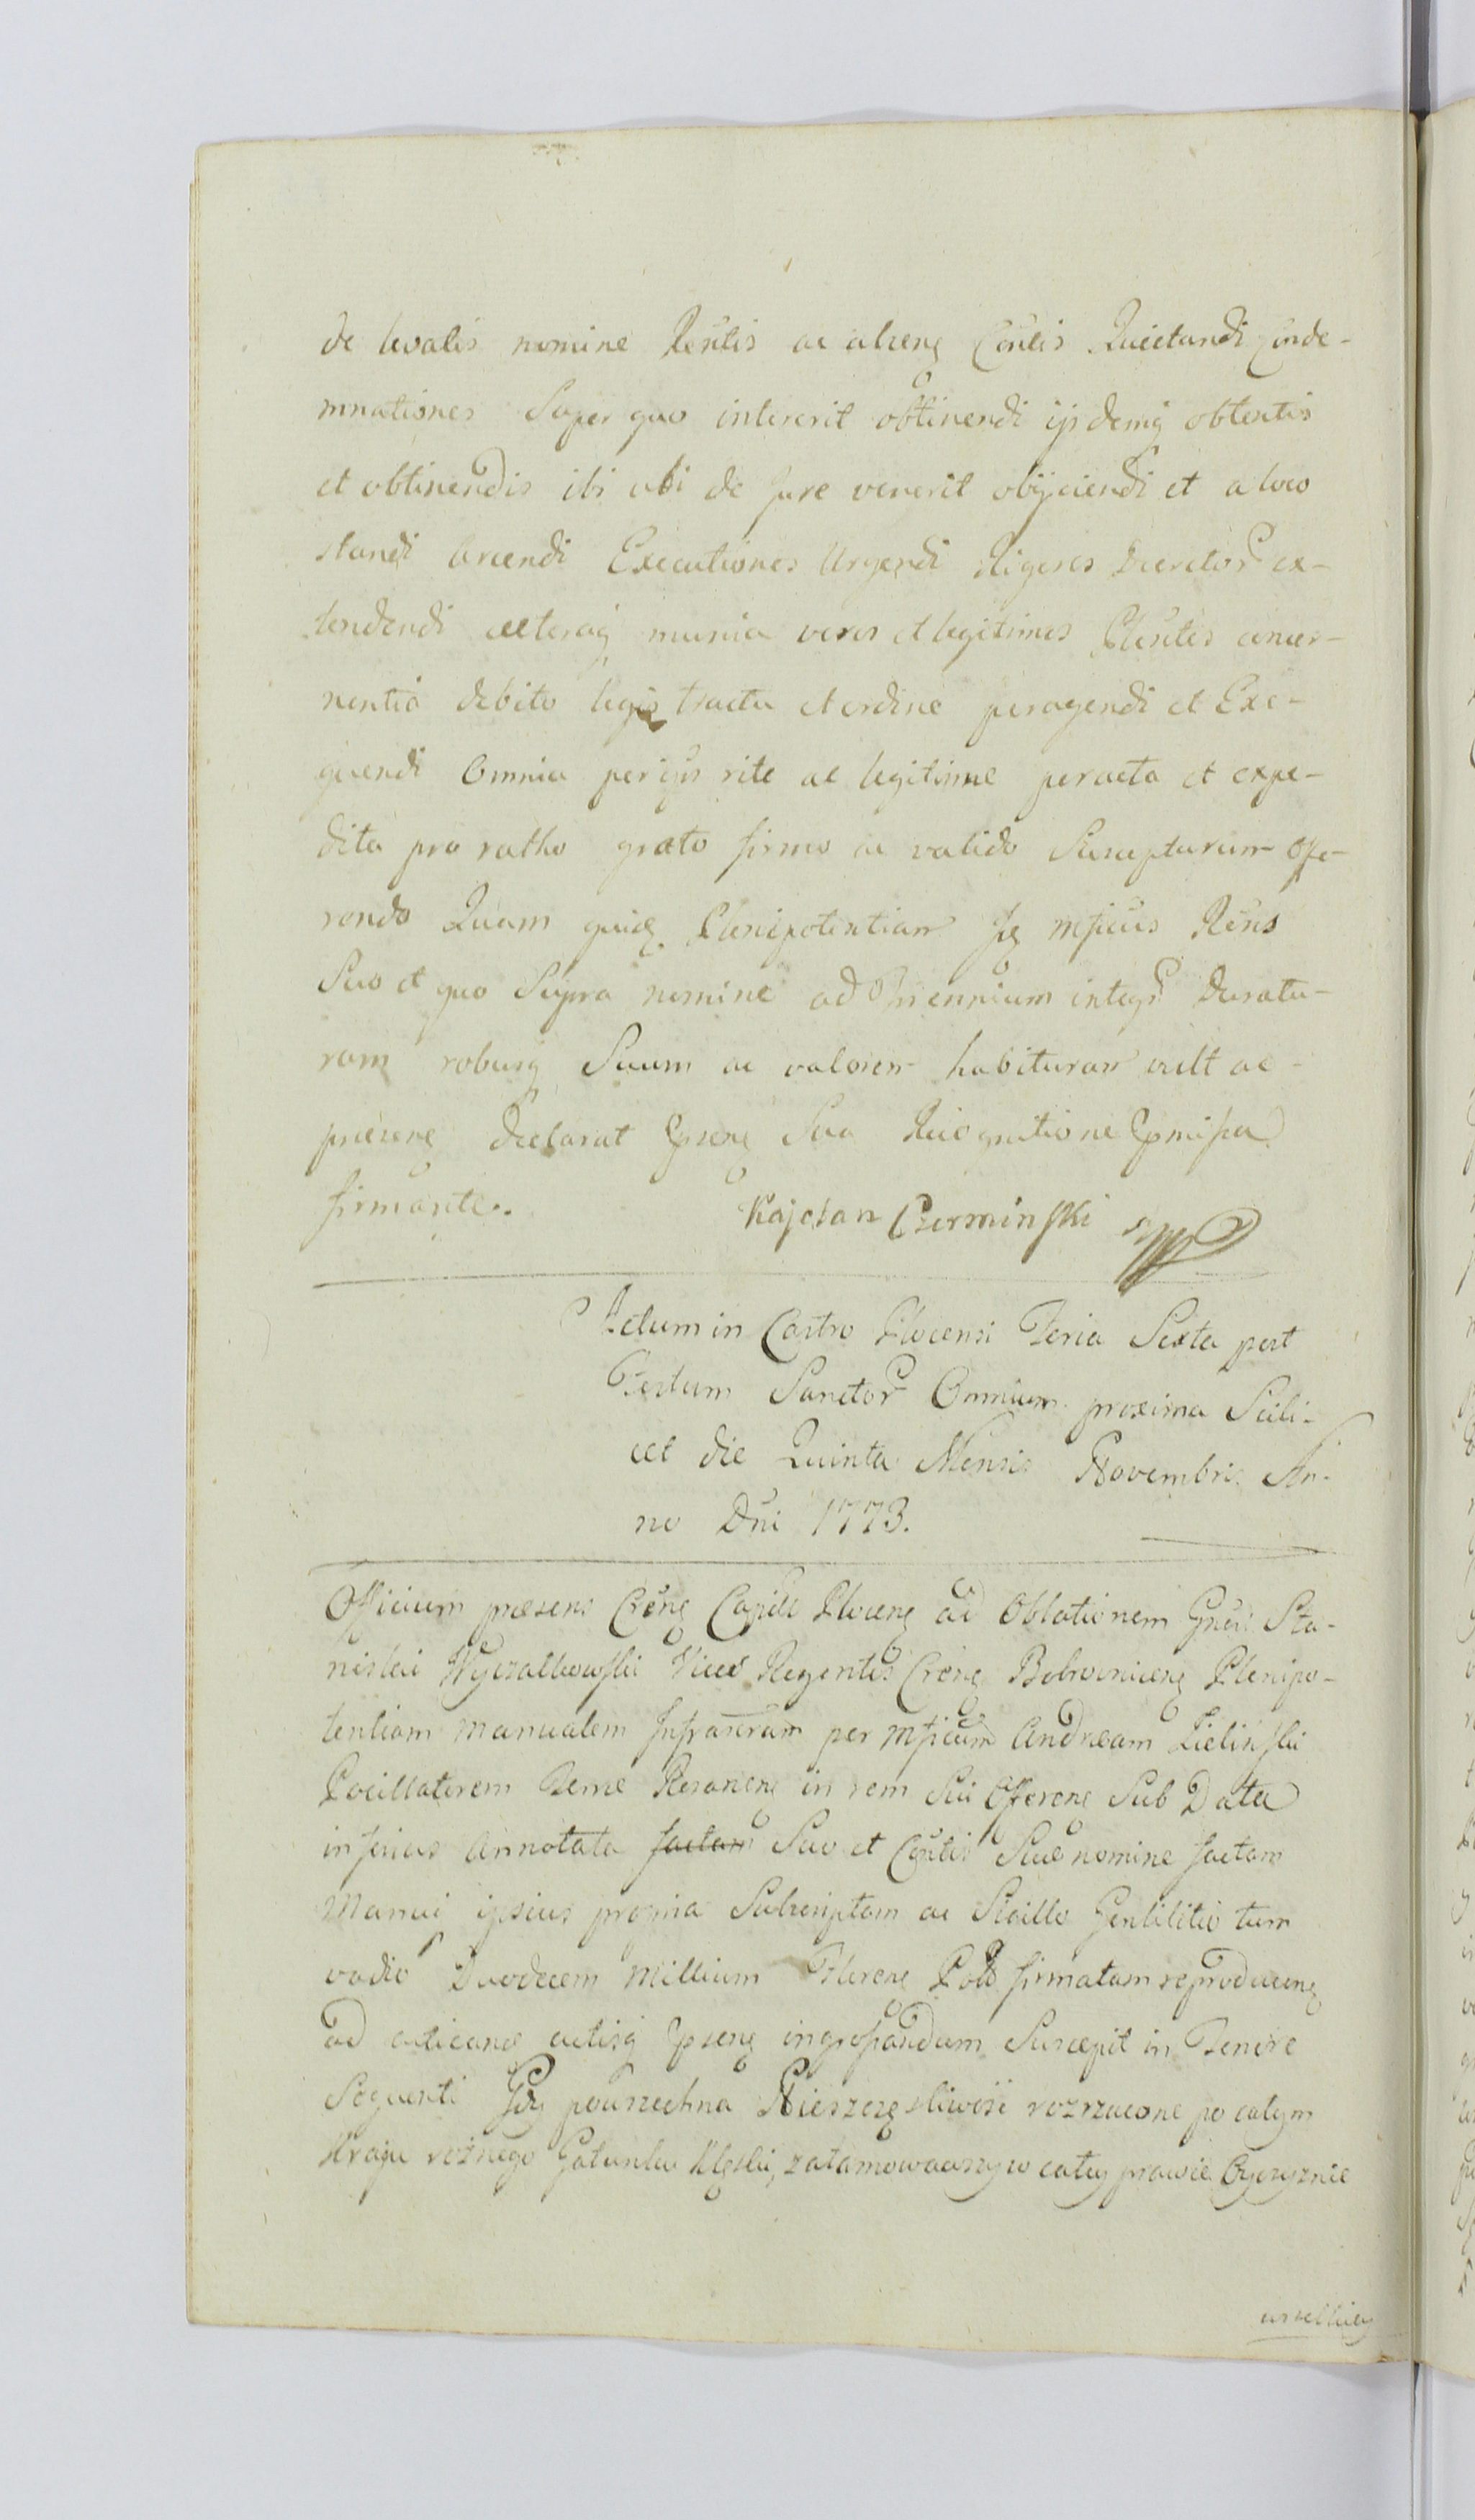 de levatis nomine Rentis ac alieng Contis Quietandi Conde-
mnationes Super quo intererit obtinendi ijsdemq obtentis
et obtinendis ibi ubi de Jure venerit obijciendi et a loco
standi arcendi Executiones Urgendi Rigores Decretor ex-
tendendi caeteraq munia veros et legitimos Plentes concer-
nentia debito legis tractu et ordine peragendi et Exe-
quendi Omnia per ijs rite ac legitime peracta et expe-
dita pro ratho grato firmo ac valido Suscepturum Offe-
rendo Quam quidę Plenipotentiam Mficus Rens
Suo et quo Supra nomine ad Triennium integr Duratu-
ram roburq Suum ac valorem habituram vult ac
praeseng declarat Pnseng Sua Recognitione Pmissa
firmante.
Kajetan Czerminski mpp
Actum in Castro Plocensi Feria Sexta post
Festum Sanctor Omnium proxima Scili-
cet die Quinta Mensis Novembris An-
no Dni 1773.
Officium praesens Creng Capitle Ploceng ad Oblationem Gnsi Sta-
nislai Wyczalkowski Vices Regentis Creng Bobrowniceng Plenipo-
tentiam manualem Infrascram per Mficum Andraeam Zielinski
Pocillatorem Terrae Rosaneng in rem Sui Offereng Sub Data
inferius Annotata factam Suo et Contis Suae nomine factam
Manui ipsius propria Subscriptam ac Sigillo Gentilitio tum
vadio Duodecem Millium Floreng Pol firmatam reproduceng
ad acticand actisq Pnseng ingrossandum Suscepit in Tenore
Sequenti Gdy powszechna Nieszczęsliwość rozrzucone po całym
Kraju rożnego Gatunku Klęski, zatamowawszy w całey prawie Oyczyznie
wszelkiey